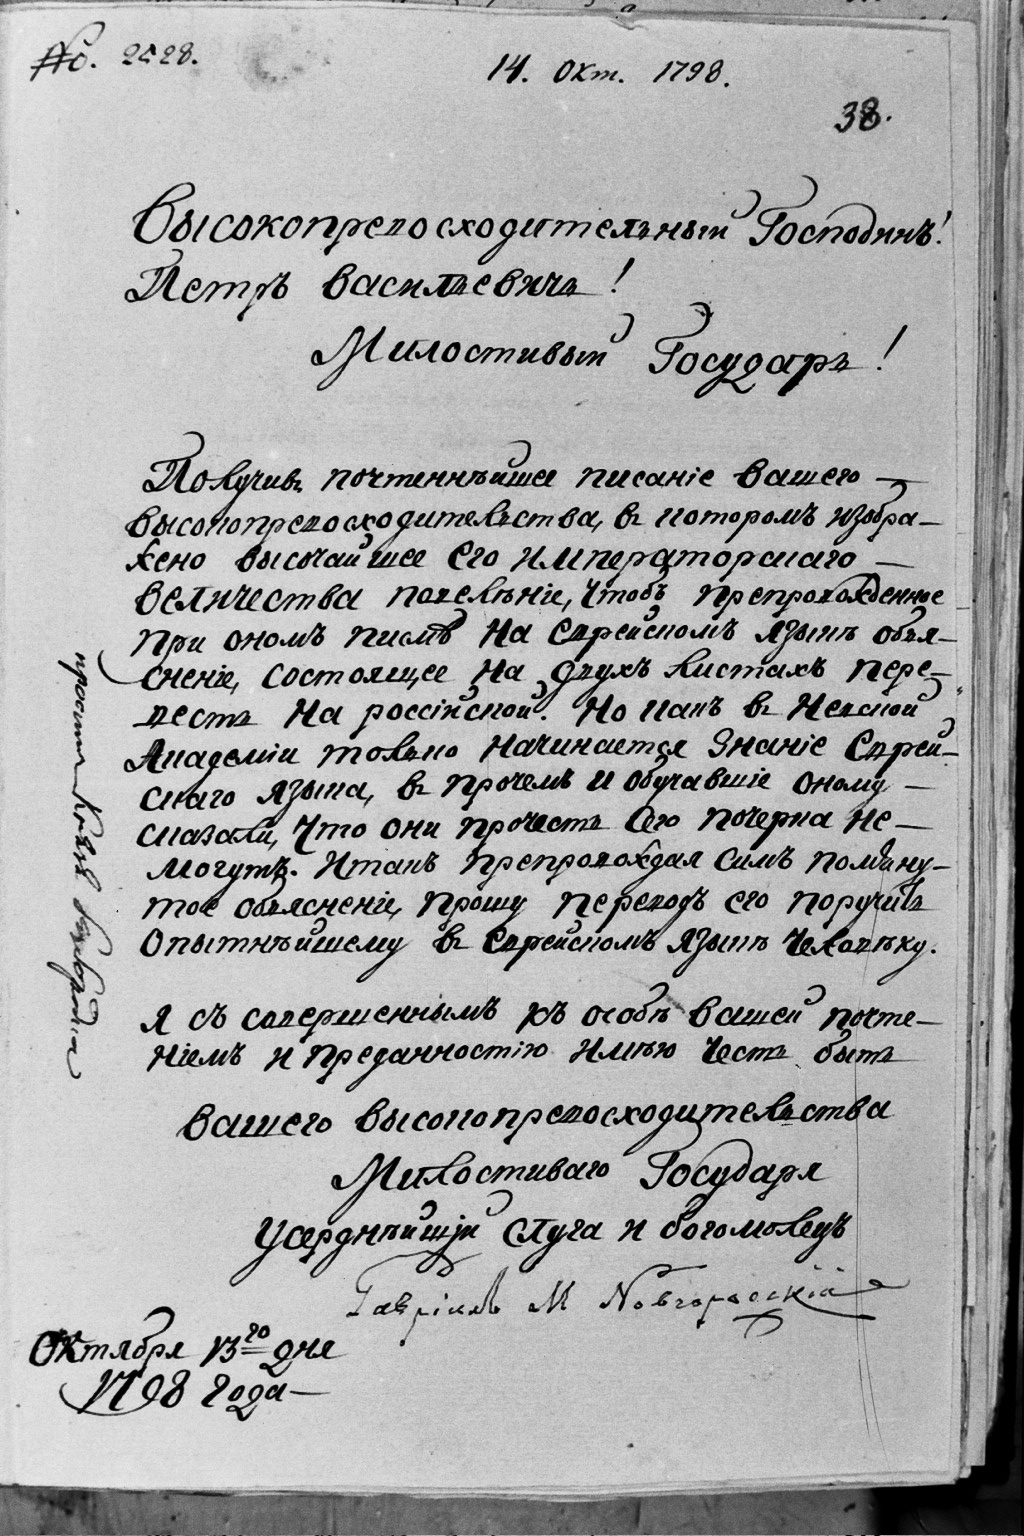 No. 2528.
14. Окт. 1798.
38.
Высокопревосходительный Господинъ!
Петръ Васильевичь!
Милостивый Государь!
Получивъ почтеннѣйшее писаніе Вашего
Высокопревосходительства, въ которомъ изобра-
жено высочайшее Его Императорскаго
Величества повелѣніе, чтобъ препровожденное
при ономъ писмѣ на Еврейскомъ языкѣ объя-
сненіе, состоящее на двухъ листахъ пере-
весть на россійской. Но какъ въ Невской
Академіи только начинается знаніе Еврей-
скаго языка, въ прочемъ и обучавшіе оному
сказали, что они прочесть сего почерка не
могутъ. Итакъ препровождая симъ помяну-
тое объясненіе, прошу переводъ его поручить
опытнѣйшему въ Еврейскомъ языкѣ человѣку.
Я съ совершеннымъ къ особѣ вашей почте-
ніемъ и преданностію имѣю честь быть
Вашего высокопревосходительства
Милостиваго Государя
усерднѣйшій слуга и богомолецъ
Гавріилъ М Новгородскій
Октября 13го дня
1798 года